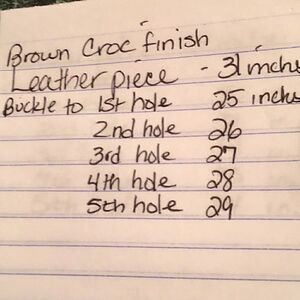 Brown Croc finish
Leather piece - 31 inche
Buckle to 1st hole 25 inche
2nd hole 26
3rd hole 27
4th hole 28
5th hole 29